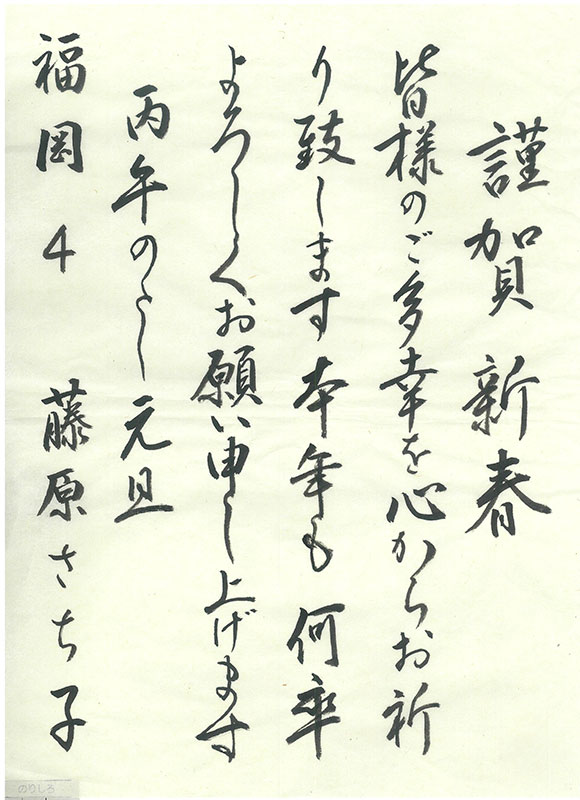 謹賀新春
皆様のご多幸を心からお祈
り致します本年も何卒
よろしくお願い申し上げます
丙午のとし元旦
福岡 4 藤原さち子
のりしろ